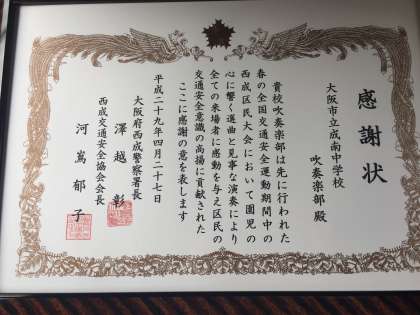 感謝状
大阪市立成南中学校
吹奏楽部殿
貴校吹奏楽部は先に行われた
春の全国交通安全運動期間中の
西成区民大会において園児の
心に響く選曲と見事な演奏により
全ての来場者に感動を与え区民の
交通安全意識の高揚に貢献された
ここに感謝の意を表します
平成二十九年四月二十七日
大阪府西成警察署長
澤越彰
西成交通安全協会会長
河嶌郁子